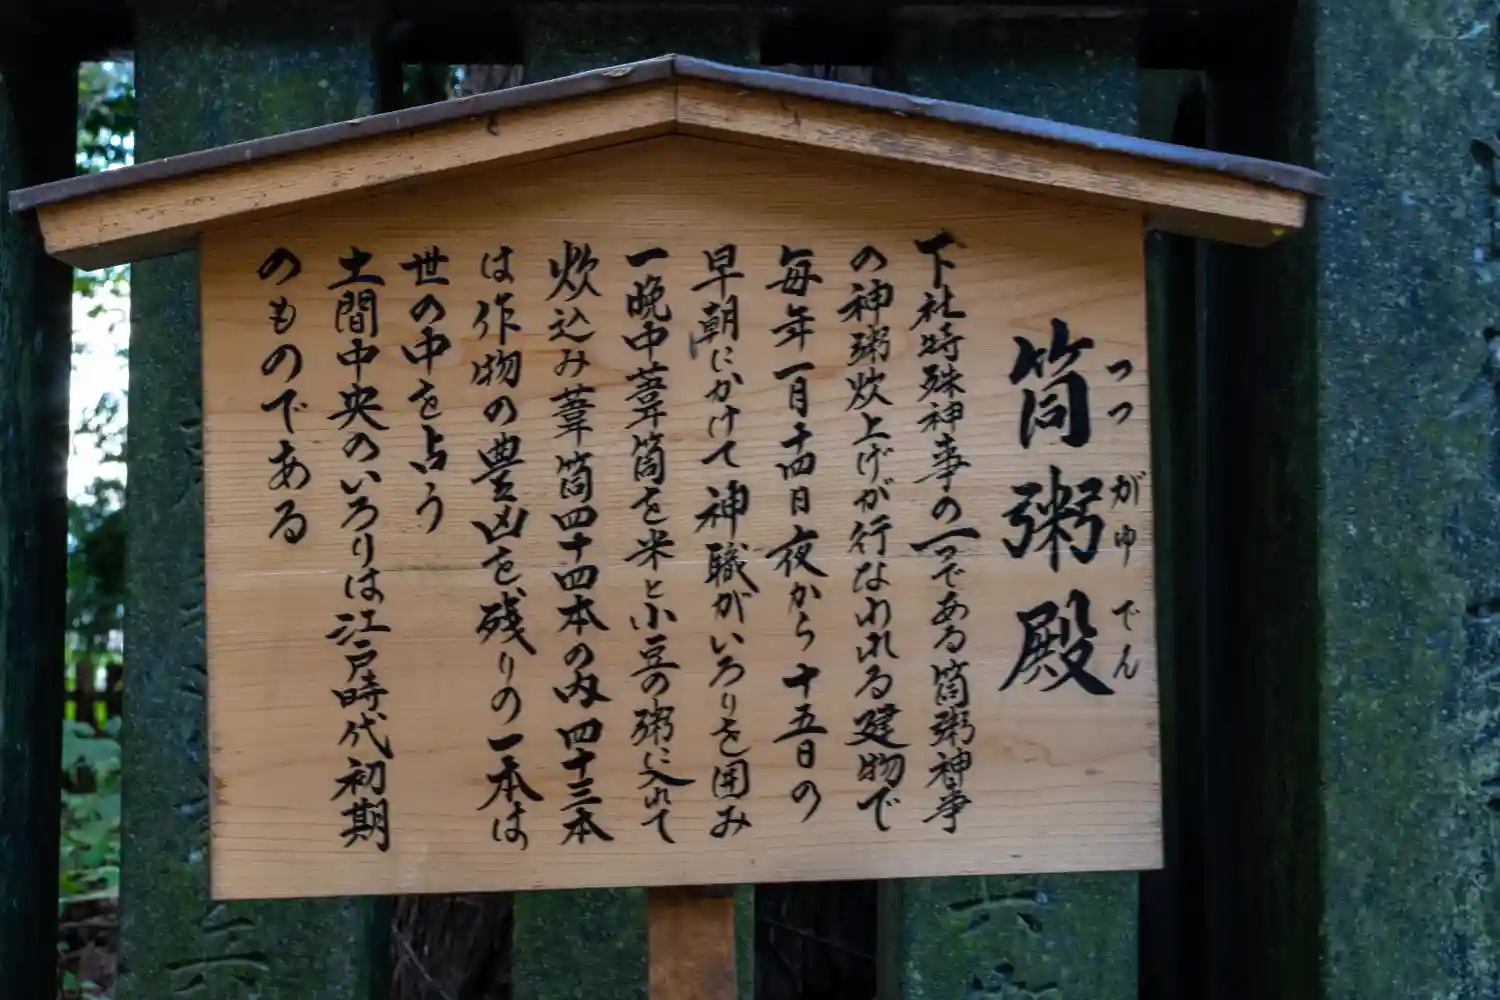 筒粥殿
つつがゆでん
下社特殊神事の一つである筒粥神事
の神粥炊上げが行なわれる建物で
毎年一月十四日夜から十五日の
早朝にかけて神職がいろりを囲み
一晩中葦筒を米と小豆の粥に入れて
炊込み葦筒四十四本の内四十三本
は作物の豊凶を残りの一本は
世の中を占う
土間中央のいろりは江戸時代初期
のものである